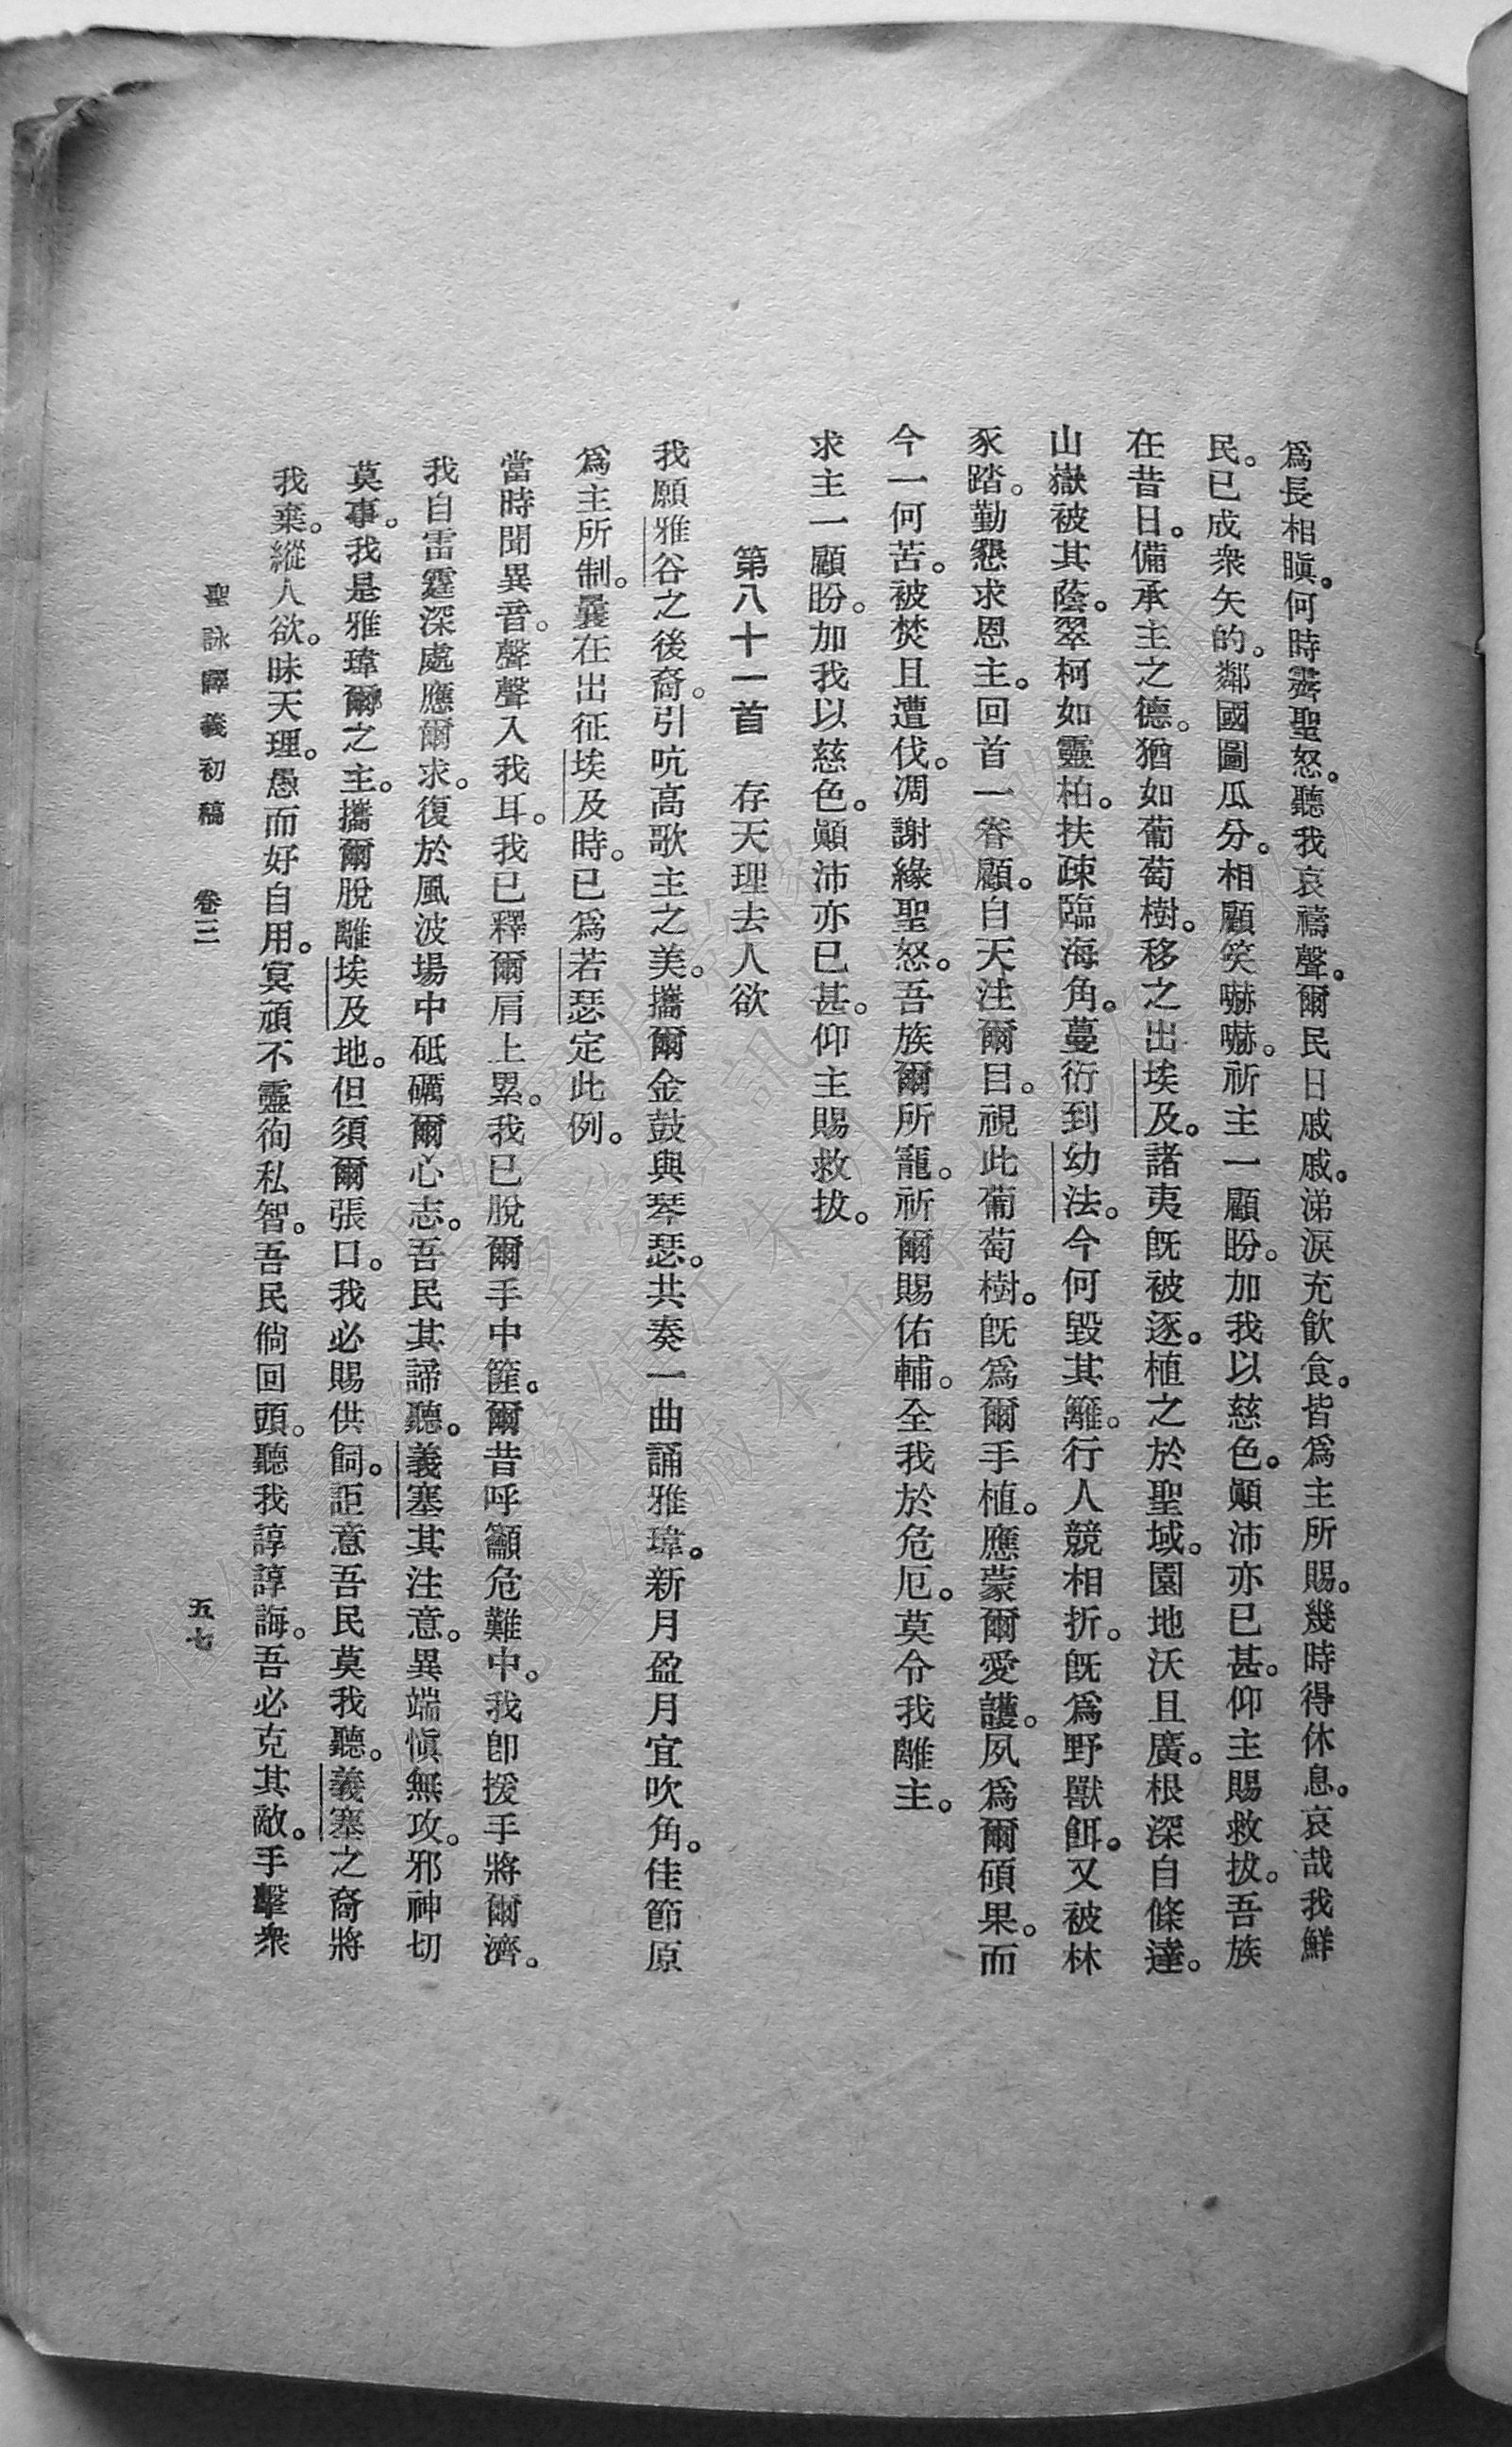 爲長相瞋。何時霽聖怒。聽我哀禱聲。爾民日戚戚。涕淚充飲食。皆爲主所賜。幾時得休息。哀哉我鮮
民。已成衆矢的。鄰國圖瓜分。相顧笑嚇嚇。祈主一顧盼。加我以慈色。顚沛亦已甚。仰主賜救拔。吾族
在昔日。備承主之德。猶如葡萄樹。移之出埃及。諸夷旣被逐。植之於聖域。園地沃且廣。根深自條達。
山嶽被其蔭。翠柯如靈柏。扶疎臨海角。蔓衍到幼法。今何毀其籬。行人競相折。旣爲野獸餌。又被林
豕踏。勤懇求恩主。回首一眷顧。自天注爾目。視此葡萄樹。旣爲爾手植。應蒙爾愛護。夙爲爾碩果。而
今一何苦。被焚且遭伐。凋謝緣聖怒。吾族爾所寵。祈爾賜佑輔。全我於危厄。莫令我離主。
求主一顧盼。加我以慈色。顚沛亦已甚。仰主賜救拔。
第八十一首 存天理去人欲
我願雅谷之後裔。引吭高歌主之美。攜爾金鼓與琴瑟。共奏一曲誦雅瑋。新月盈月宜吹角。佳節原
爲主所制。曩在出征埃及時。已爲若瑟定此例。
當時聞異音。聲聲入我耳。我已釋爾肩上累。我已脫爾手中篚。爾昔呼籲危難中。我卽援手將爾濟。
我自雷霆深處應爾求。復於風波場中砥礪爾心志。吾民其諦聽。義塞其注意。異端愼無攻。邪神切
莫事。我是雅瑋爾之主。攜爾脫離埃及地。但須爾張口。我必賜供飼。詎意吾民莫我聽。義塞之裔將
我棄。縱人欲。昧天理。愚而好自用。冥頑不靈徇私智。吾民倘回頭。聽我諄諄誨。吾必克其敵。手擊衆
聖詠譯義初稿 卷三 五七